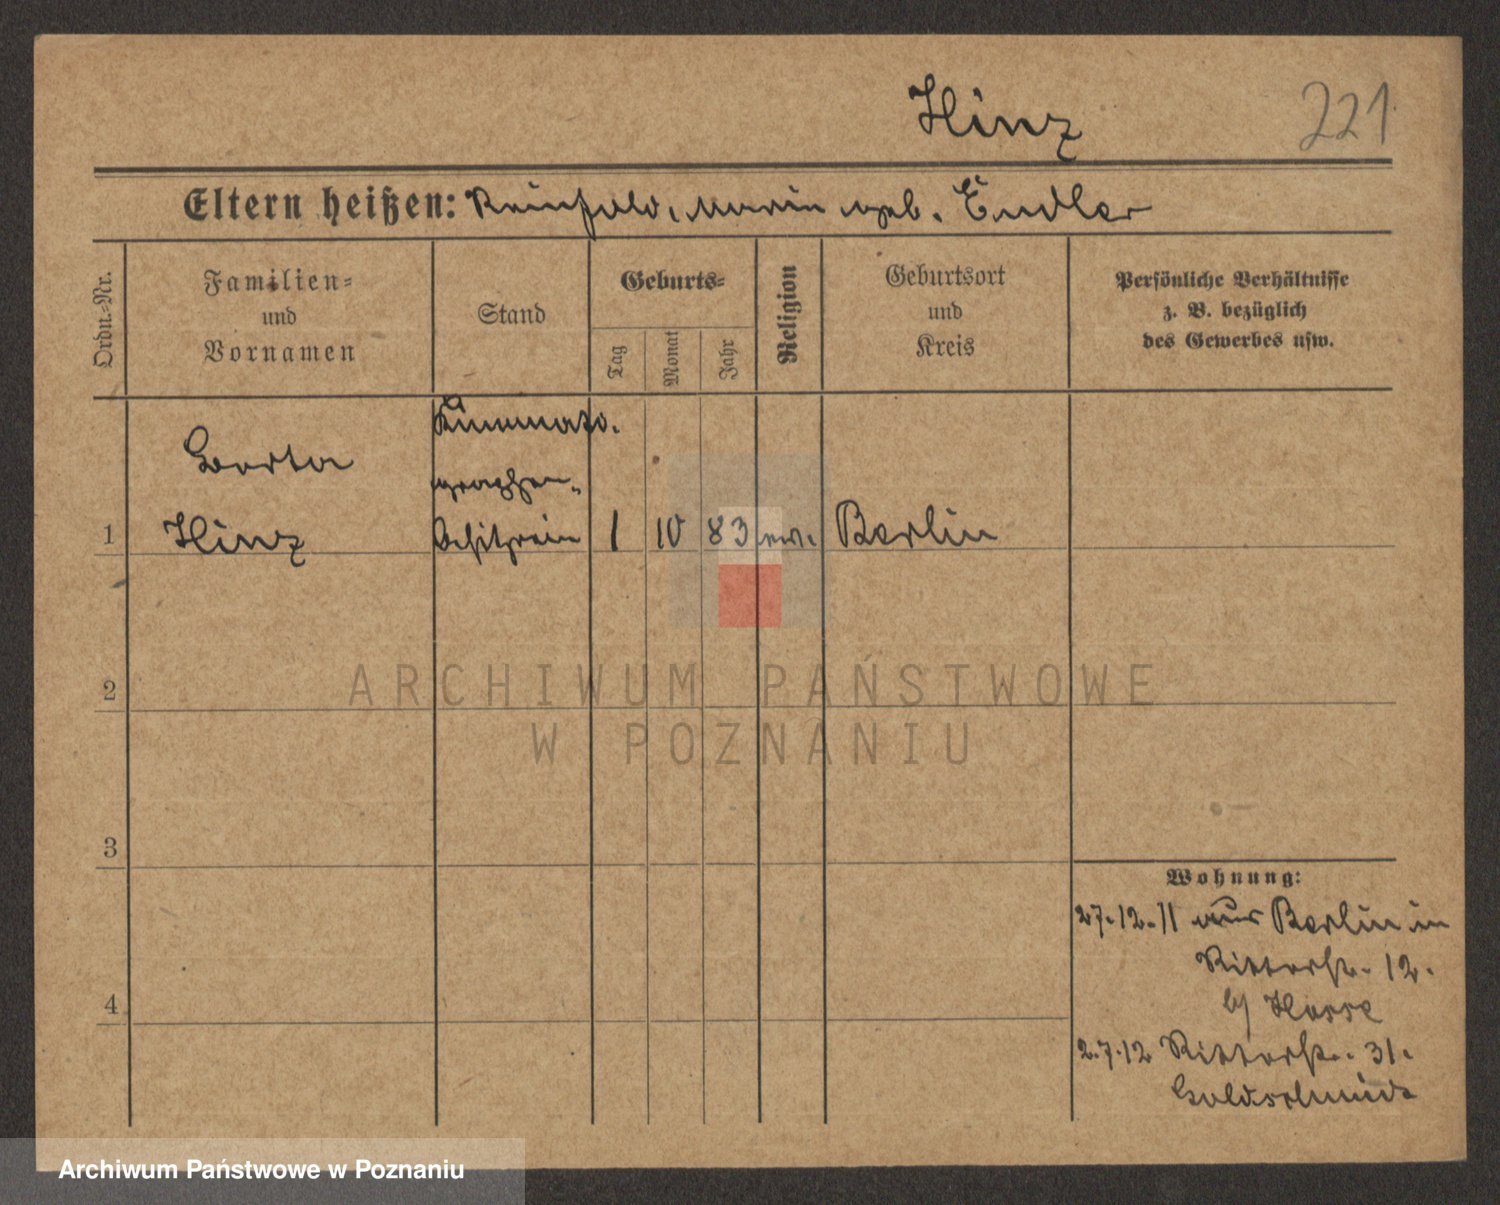 Hinz
221
Eltern heißen: Reinhold, Marie geb. Endler
Ordn.=Nr.
Familien=
und
Vornamen
Stand
Geburts=
Tag
Monat
Jahr
Religion
Geburtsort
und
Kreis
Persönliche Verhältnisse
z. B. bezüglich
des Gewerbes usw.
Kinemato.
graphen-
besitzerin
Hinz
1
1
10
83
ev.
Berlin
2
3
4
Wohnung:
27.12.11 aus Berlin in
Ritterstr. 12.
bj
2.7.12 Ritterstr. 31.
Goldschmidt
ARCHIWUM PAŃSTWOWE
W POZNANIU
Archiwum Państwowe w Poznaniu